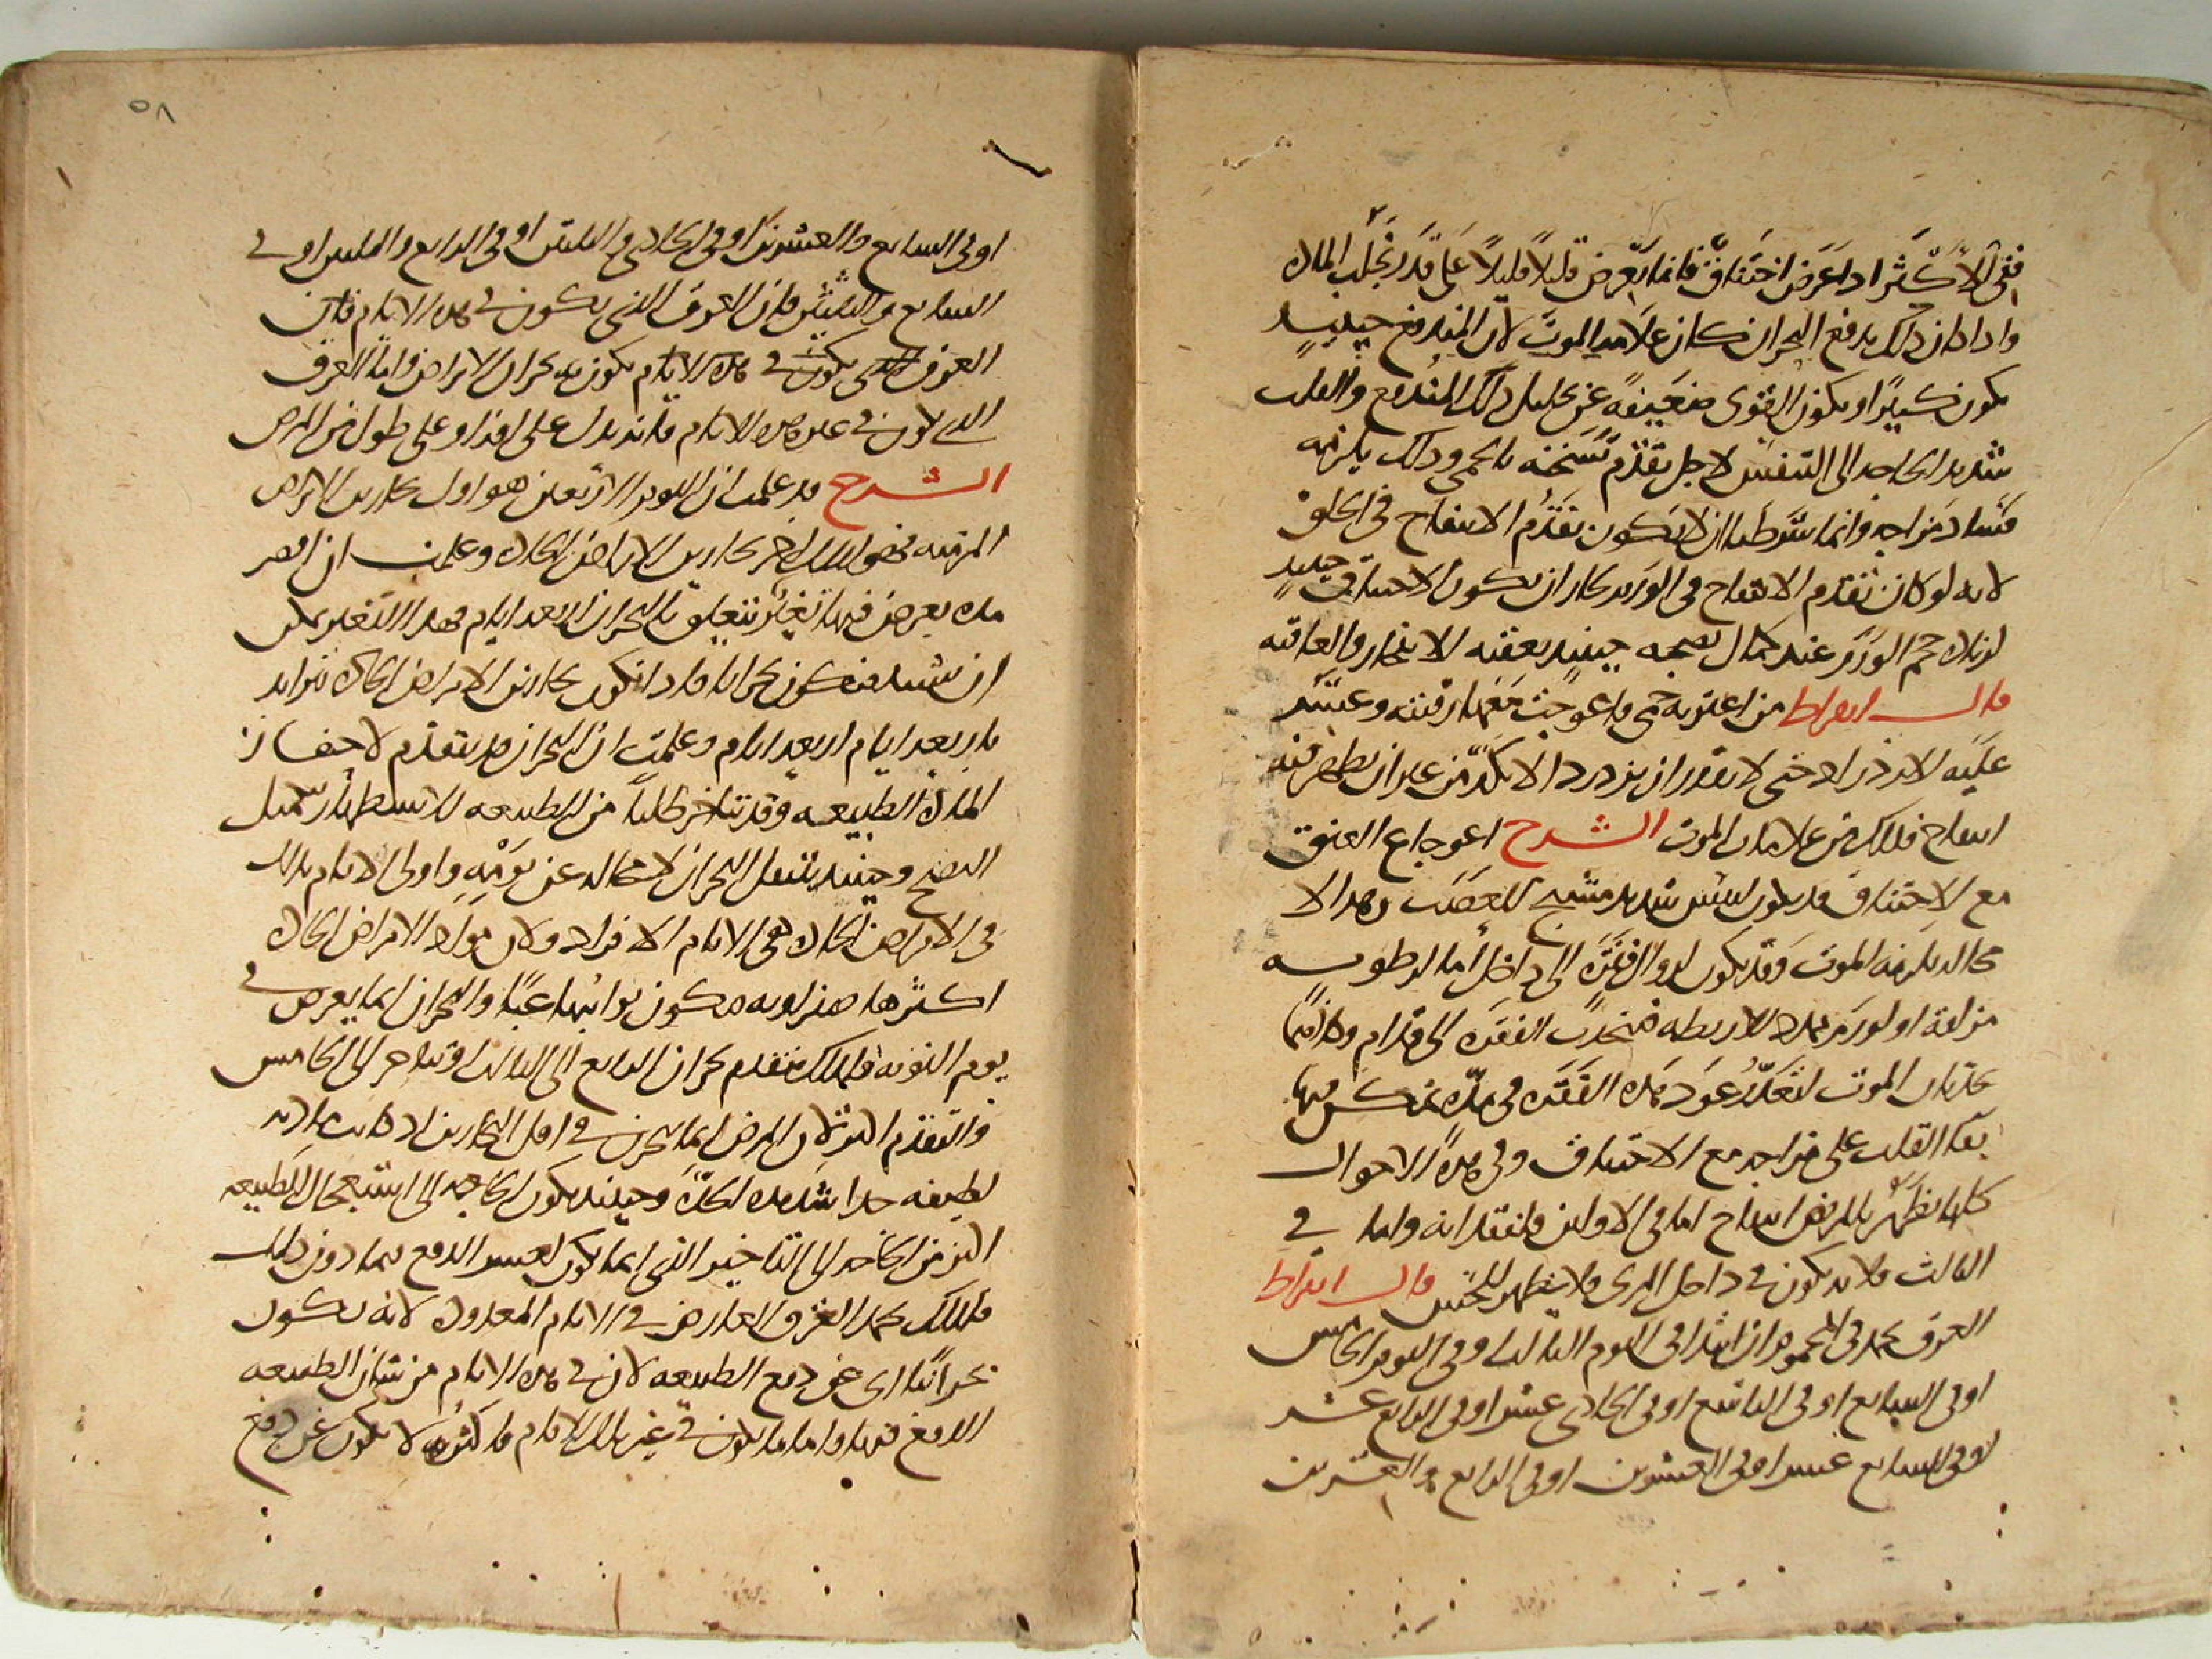 ففى الاكثر اذا عرض اختناق فانما يعرض قليلا قليلا على قدر تجلب المادة
واذا كان ذلك بدفع البحران كان علامة الموت لان المندفع حينيذ
يكون كثيرا ويكون القوى ضعيفة عن تحليل ذلك المندفع والقلب
شديد الحاجة الى التنفس لاجل تقدم تسخنه بالحمى وذلك يلزمه
فساد مزاجه وانما شرطنا ان لا يكون تقدم الانتفاخ فى الحلق
لانه لو كان تقدم الانتفاخ فى الورم كان ان يكون الاختناق حينيذ
لزيادة حجم الورم عند كمال نضجه حينيذ يعقبه الانفجار والعافية
قال ابقراط من اعترته حمى فاعوجت معها رقبته وعسر
عليه الازدراد حتى لا يقدر ان يزدرد الا بكد من غير ان يظهر فيه
انتفاخ فذلك من علامات الموت الشرح اعوجاج العنق
مع الاختناق قد يكون ليبس شديد مشنج للعصب وهذا لا
محالة يلزمه الموت وقد يكون لزوال فقرة الى داخل اما لرطوبة
مزلقة او لورم يمدد الاربطة فيجذب الفقرة الى قدام
الموت لتعذر عود هذه الفقرة فى مدة يمكن فيها
بقا القلب على مزاجه مع الاختناق وفى هذه الاحوال
كلها يظهر بالمريض انتفاخ اما فى الاولين فلفقدانه واما فى
الثالث فلانه يكون فى داخل المرى فلا يظهر للحس قال ابقراط
العرق يحمد فى المحموم ان ابتدا فى اليوم الثالث او فى اليوم الخامس
او فى السابع او فى التاسع او فى الحادى عشر او فى الرابع عشر
او فى السابع عشر او فى العشرين او فى الرابع والعشرين
٥٨
او فى السابع والعشرين او فى الحادى والثلثين او فى الرابع والثلثين او فى
السابع والثلثين فان العرق الذى يكون فى هذه الايام فان
العرق الذى يكون فى هذه الايام يكون به بحران الامراض واما العرق
الذى يكون فى غير هذه الايام فانه يدل على افة او على طول من المرض
الشرح قد علمت ان اليوم الاربعين هو اول بحارين الامراض
المزمنة فهو اخر بحارين الامراض الحادة وعلمت ان اقصر
مدة يعرض فيها تغير يتعلق بالبحران اربعة ايام فهذا التغير يمكن
ان يشتد فيكون بحرانا فاذا تكون بحارين الامراض الحادة تتزايد
باربعة ايام اربعة ايام وعلمت ان البحران قد يتقدم لاحفاز
المادة الطبيعة وقد يتاخر طلبا من الطبيعة للاستظهار بتكميل
النضج وحينيذ ينتقل البحران لا محالة عن يومه واولى الايام بذلك
فى الامراض الحادة هى الايام الافراد ولان مواد الامراض الحادة
اكثرها صفراوية فيكون نوايبها غبا والبحران انما يعرض فى
يوم النوبة فلذلك يتقدم بحران الرابع الى الثالث او يتاخر الى الخامس
والتقدم اكثر لان المرض انما يبحرن فى اول البحارين اذا كانت مادته
لطيفة جدا شديدة الحدة وحينيذ يكون الحاجة الى استعجال الطبيعة
اكثر من الحاجة الى التاخير الذى انما يكون لعسر الدفع فيما دون ذلك
فلذلك يحمد العرق العارض فى الايام المعدودة لانه يكون
بحرانيا اى عن دفع الطبيعة لان فى هذه الايام من شان الطبيعة
الدفع فيها واما ما يكون فى غير تلك الايام فاكثره لا يكون عن دفع